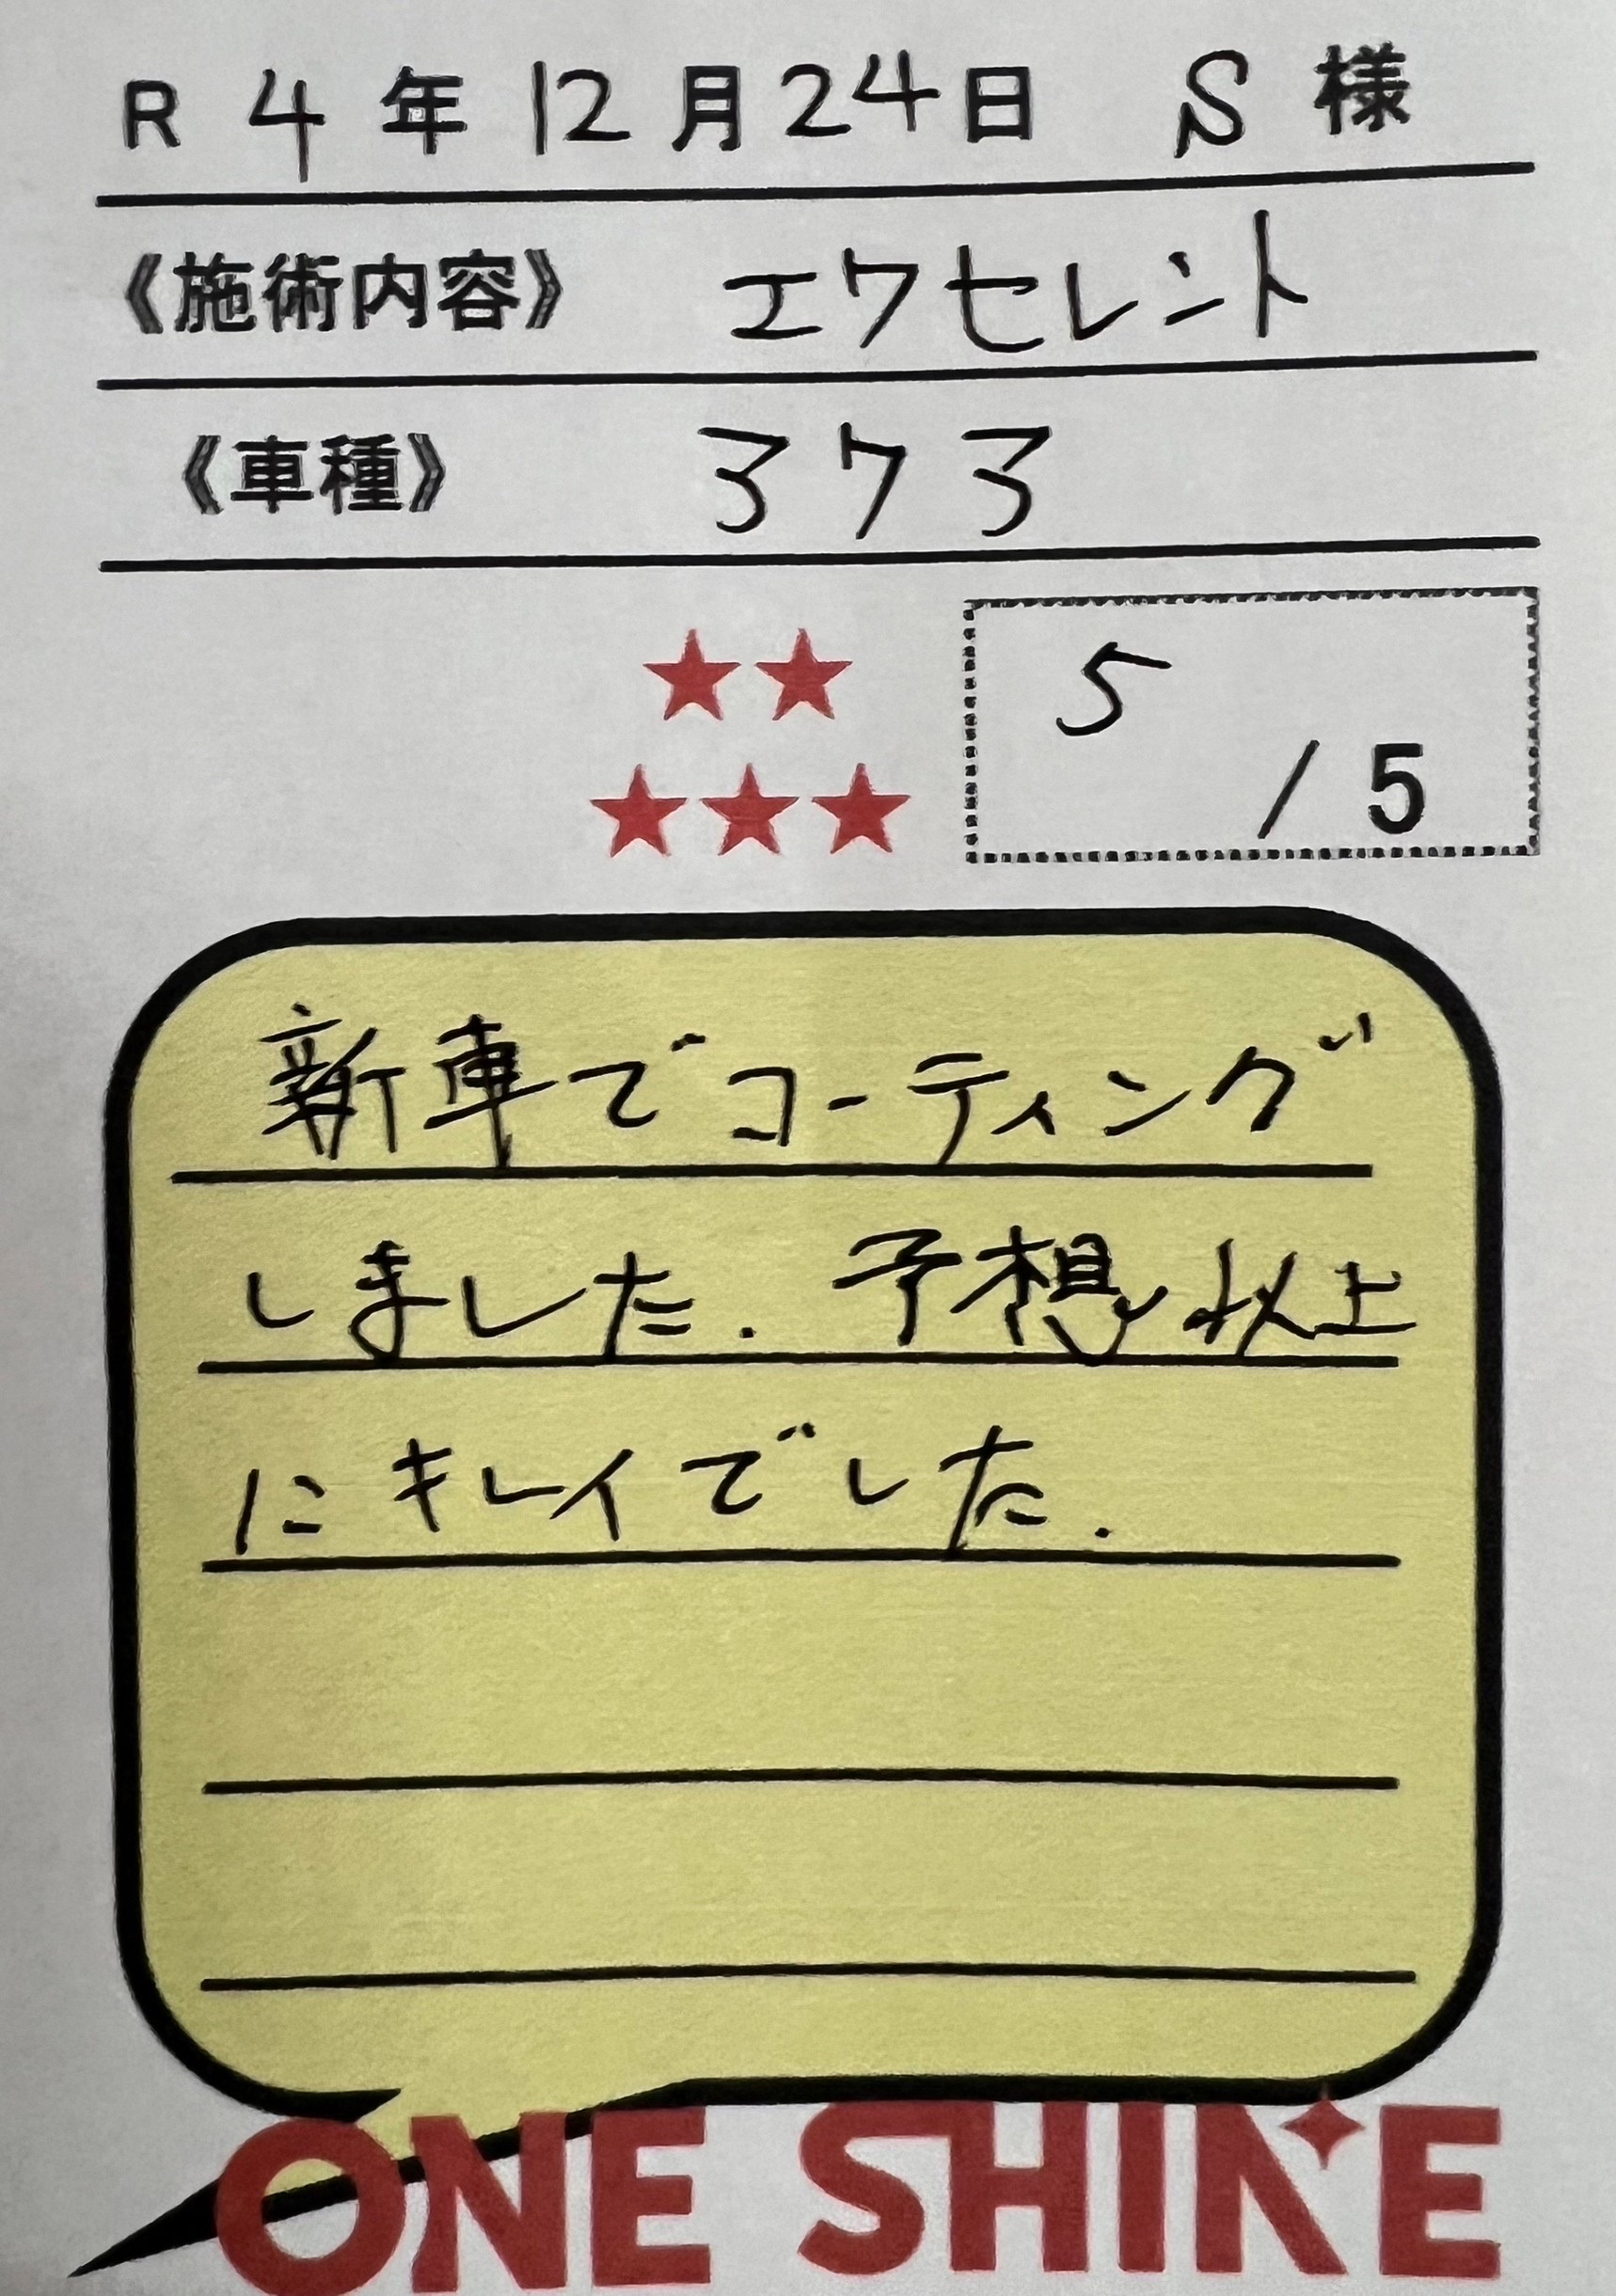 R 4 年 12 月 24 日 S 様
《施術内容》 エクセレント
《車種》 373
★★
5
★★★
/ 5
新車でコーティング
しました. 予想以上
にキレイでした.
ONE SHINE